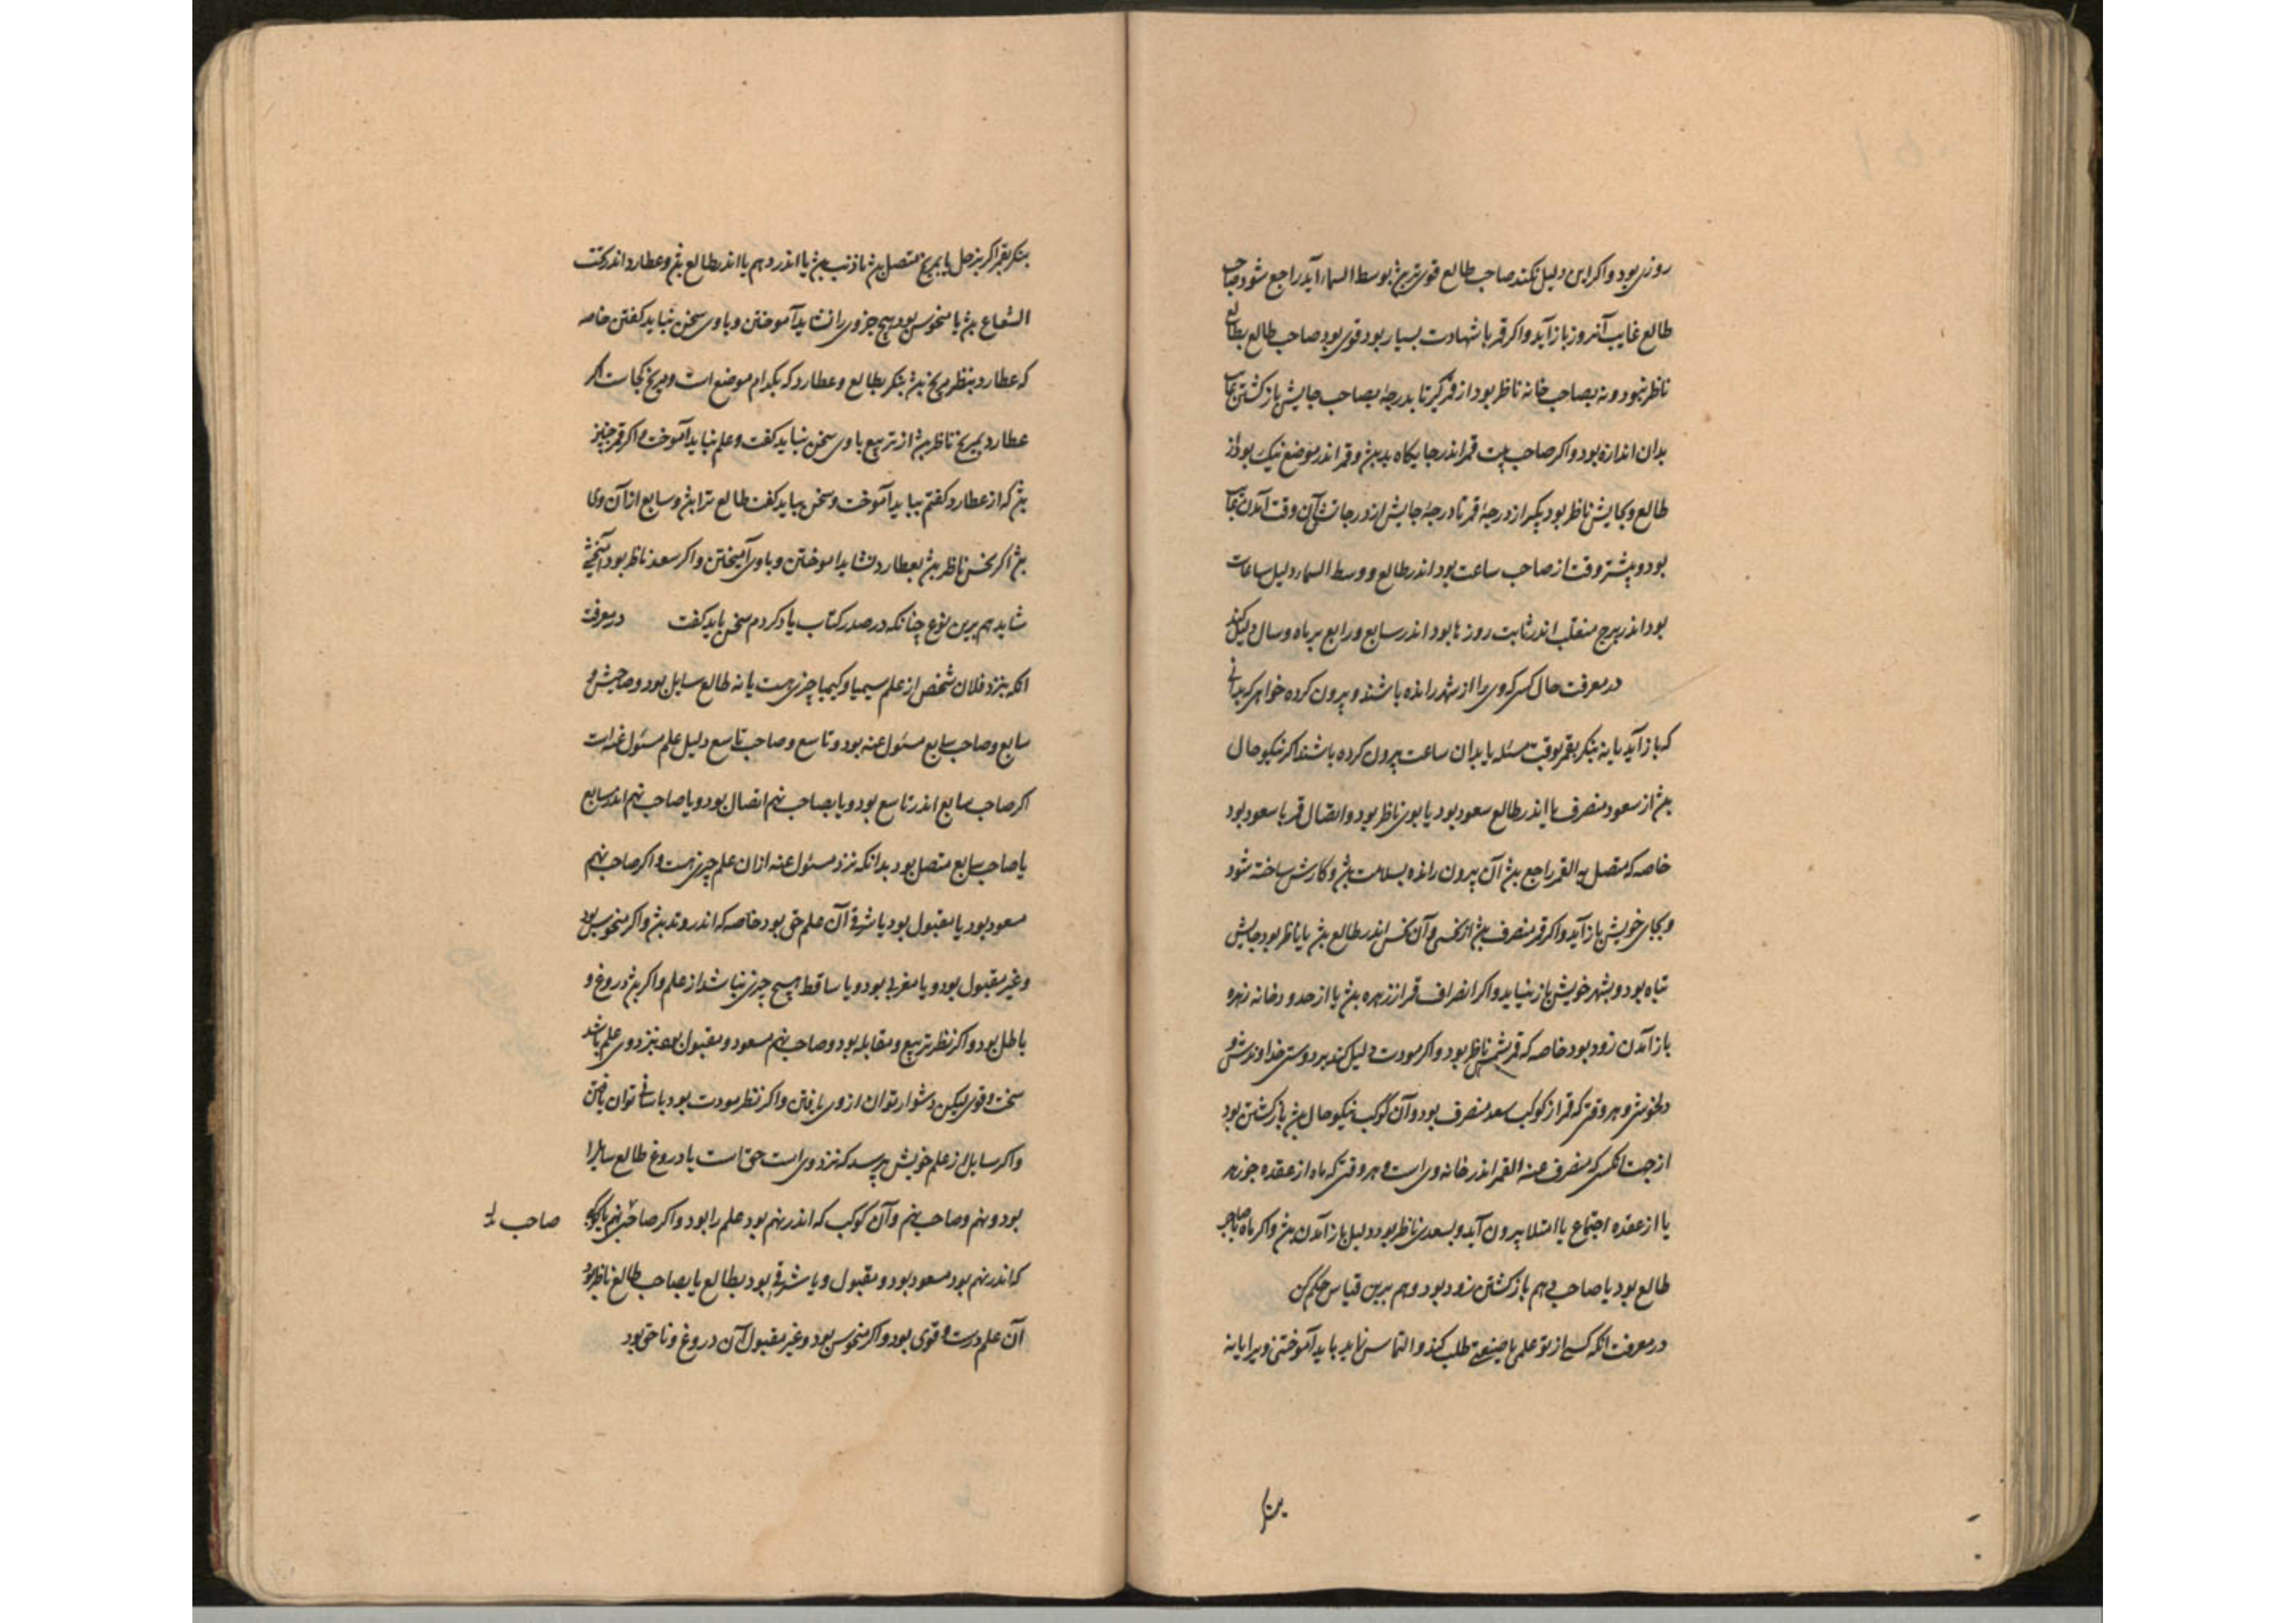 روزی بود و اکر این دلیل نکند صاحب طالع قوی تر بین بوسط السما آید راجع شود صاحب
طالع غایب آنروز باز آید و اکر قمر با شهادت بسیار بود قوی بود صاحب طالع بطالع
ناظر نبود و نه بصاحب خانه ناظر بود از قمر کیر تا بدرجهٔ بصاحب جایش باز کشتن غایب
بدان اندازه بود و اکر صاحب بیت قمر اندر جایکاه بد بین و قمر اندر موضع نیک بود از
طالع و بجایش ناظر بود بکیر از درجهٔ قمر تا درجهٔ جایش اندر درجات آن وقت آمدن غایب
بود و بیشتر وقت از صاحب ساعت بود اندر طالع و وسط السما دلیل ساعات
بود اندر برج منقلب اندر ثابت روزها بود اندر سابع و رابع بر ماه و سال دلیل کند
در معرفت حال کسی که وی را از شهر رانده باشند و بیرون کرده خواهی که بدانی
که باز آید یا نه بنکر بقمر بوقت مسئله یا بدان ساعت بیرون کرده باشند اکر نیکو حال
بین از سعود منصرف یا اندر طالع سعود بود یا بوی ناظر بود و اتصال قمر با سعود بود
خاصه که متصل به القمر راجع بین آن بیرون رانده بسلامت بین و کارش ساخته شود
و بجای خویش باز آید و اکر قمر منصرف بین از نحس و آن نحس اندر طالع بین یا ناظر بود جایش
تباه بود و بشهر خویش باز نیاید و اکر انصراف قمر از زهره بین یا از حدود و خانه زهره
باز آمدن زود بود خاصه که قمر بشمس ناظر بود و اکر مودت دلیل کند بر دوستی خداوندش و
دلخوشی و هر وقتی که قمر از کوکب سعد منصرف بود و آن کوکب نیکو حال بین باز کشتن بود
از جهت انکس که منصرف عنه القمر اندر خانه وی است و هر وقتی که ماه از عقده جوزهر
یا از عقده اجتماع یا امتلا بیرون آید و بسعدی ناظر بود دلیل باز آمدن بین و اکر ماه با صاحب
طالع بود یا صاحب دهم باز کشتن زود بود و هم برین قیاس حکم کن
در معرفت انکه کسی از تو علمی یا صنعتی طلب کند و التماس نماید باید آموختنی ویرا یا نه
بنکر
بنکر بقمر اکر بزحل یا بمریخ متصل بین یا ذنب بین یا اندر دهم یا اندر طالع بین و عطارد اندر تحت
الشعاع بین یا منحوس بود هیچ چیز وی را نشاید آموختن و با وی سخن نباید کفتن خاصه
که عطارد بنظر مریخ بین بنکر بطالع و عطارد که بکدام موضع است و مریخ کجا است اکر
عطارد بمریخ ناظر بین از تربیع با وی سخن نباید کفت و علم نباید آموخت و اکر قمر چنین
بین که از عطارد کفتم بباید آموخت و سخن بباید کفت طالع ترا بین و سابع از آن وی
بین اکر نحس ناظر بین بعطارد نشاید اموختن و با وی آمیختن و اکر سعد ناظر بود
شاید هم برین نوع چنانکه در صدر کتاب یاد کردم سخن باید کفت در معرفت
انکه بنزد فلان شخص از علم سیمیا و کیمیا چیزی هست یا نه طالع سایل بود و صاحبش و
سابع و صاحب سابع مسئول عنه بود و تاسع و صاحب تاسع دلیل علم مسئول عنه است
اکر صاحب سابع اندر تاسع بود و یا بصاحب نهم اتصال بود و یا صاحب نهم اندر سابع
یا صاحب سابع متصل بود بدانکه نزد مسئول عنه از ان علم چیزی هست و اکر صاحب نهم
مسعود بود یا مقبول بود یا شرقی آن علم حق بود خاصه که اندر وتد بین و اکر منحوس بود
و غیر مقبول بود و یا مغربی بود و یا ساقط هیچ چیزی نباشد از علم و اکر بین دروغ و
باطل بود و اکر نظر تربیع و مقابله بود و صاحب نهم مسعود و مقبول بود بنزد وی علم باشد
سخت و قوی لیکن دشوار توان از وی یافتن و اکر نظر مودت بود باسانی توان یافتن
و اکر سایل از علم خویش پرسد که نزد وی است حق است یا دروغ طالع سایل را
بود و نهم و صاحب نهم و آن کوکب که اندر نهم بود علم را بود و اکر صاحب نهم یا کوکبی صاحب
که اندر نهم بود مسعود بود و مقبول و یا شرقی بود بطالع یا بصاحب طالع ناظر بود
آن علم درست و قوی بود و اکر منحوس بود و غیر مقبول آن دروغ و ناحق بود